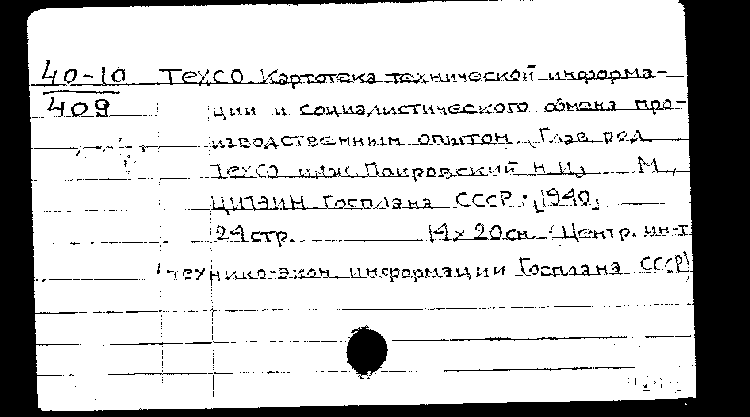 40-10 ТехСО. Картотека технической информа-
409 ции и социалистического обмена про-
изводственным опытом. Глав. ред.
ТехСО инж. Покровский Н.И. М.,
ЦИТЭИН Госплана СССР, 1940.
24 стр. 14 х 20 см. (Центр. ин-т
технико-экон. информации Госплана СССР)